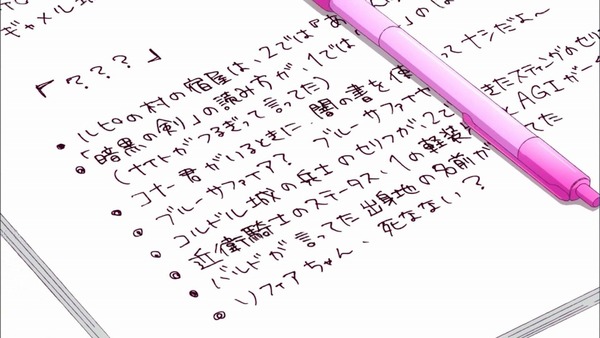 ギャメル城
『???』
・ルヒロの村の宿屋は、2では『あ の は
・「暗黒の剣」の読み方が、1では
(ナイトがつるぎって言ってた)
・コナー君がいるときに闇の書を使 って ナシだよ〜
・ブルーサファイア? ブルーサファイヤ
・コルドル城の兵士のセリフが2で きたスティングのセリ
・近衛騎士のステータス、1の軽装 とAGIが
・バルドが言ってた出身地の名前が てた
・ソフィアちゃん、死なない?